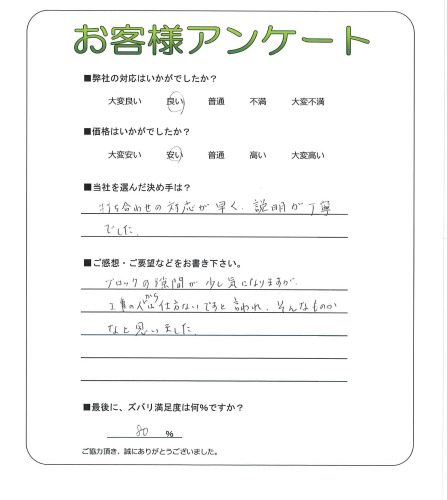 お客様アンケート
■弊社の対応はいかがでしたか？
大変良い 良い 普通 不満 大変不満
■価格はいかがでしたか？
大変安い 安い 普通 高い 大変高い
■当社を選んだ決め手は？
打ち合わせの対応が早く、説明が丁寧
でした。
■ご感想・ご要望などをお書き下さい。
ブロックの隙間が少し気になりますが、
から
工事の 仕方ないですと言われ、そんなものか
なと思いました。
■最後に、ズバリ満足度は何％ですか？
80 ％
ご協力頂き、誠にありがとうございました。